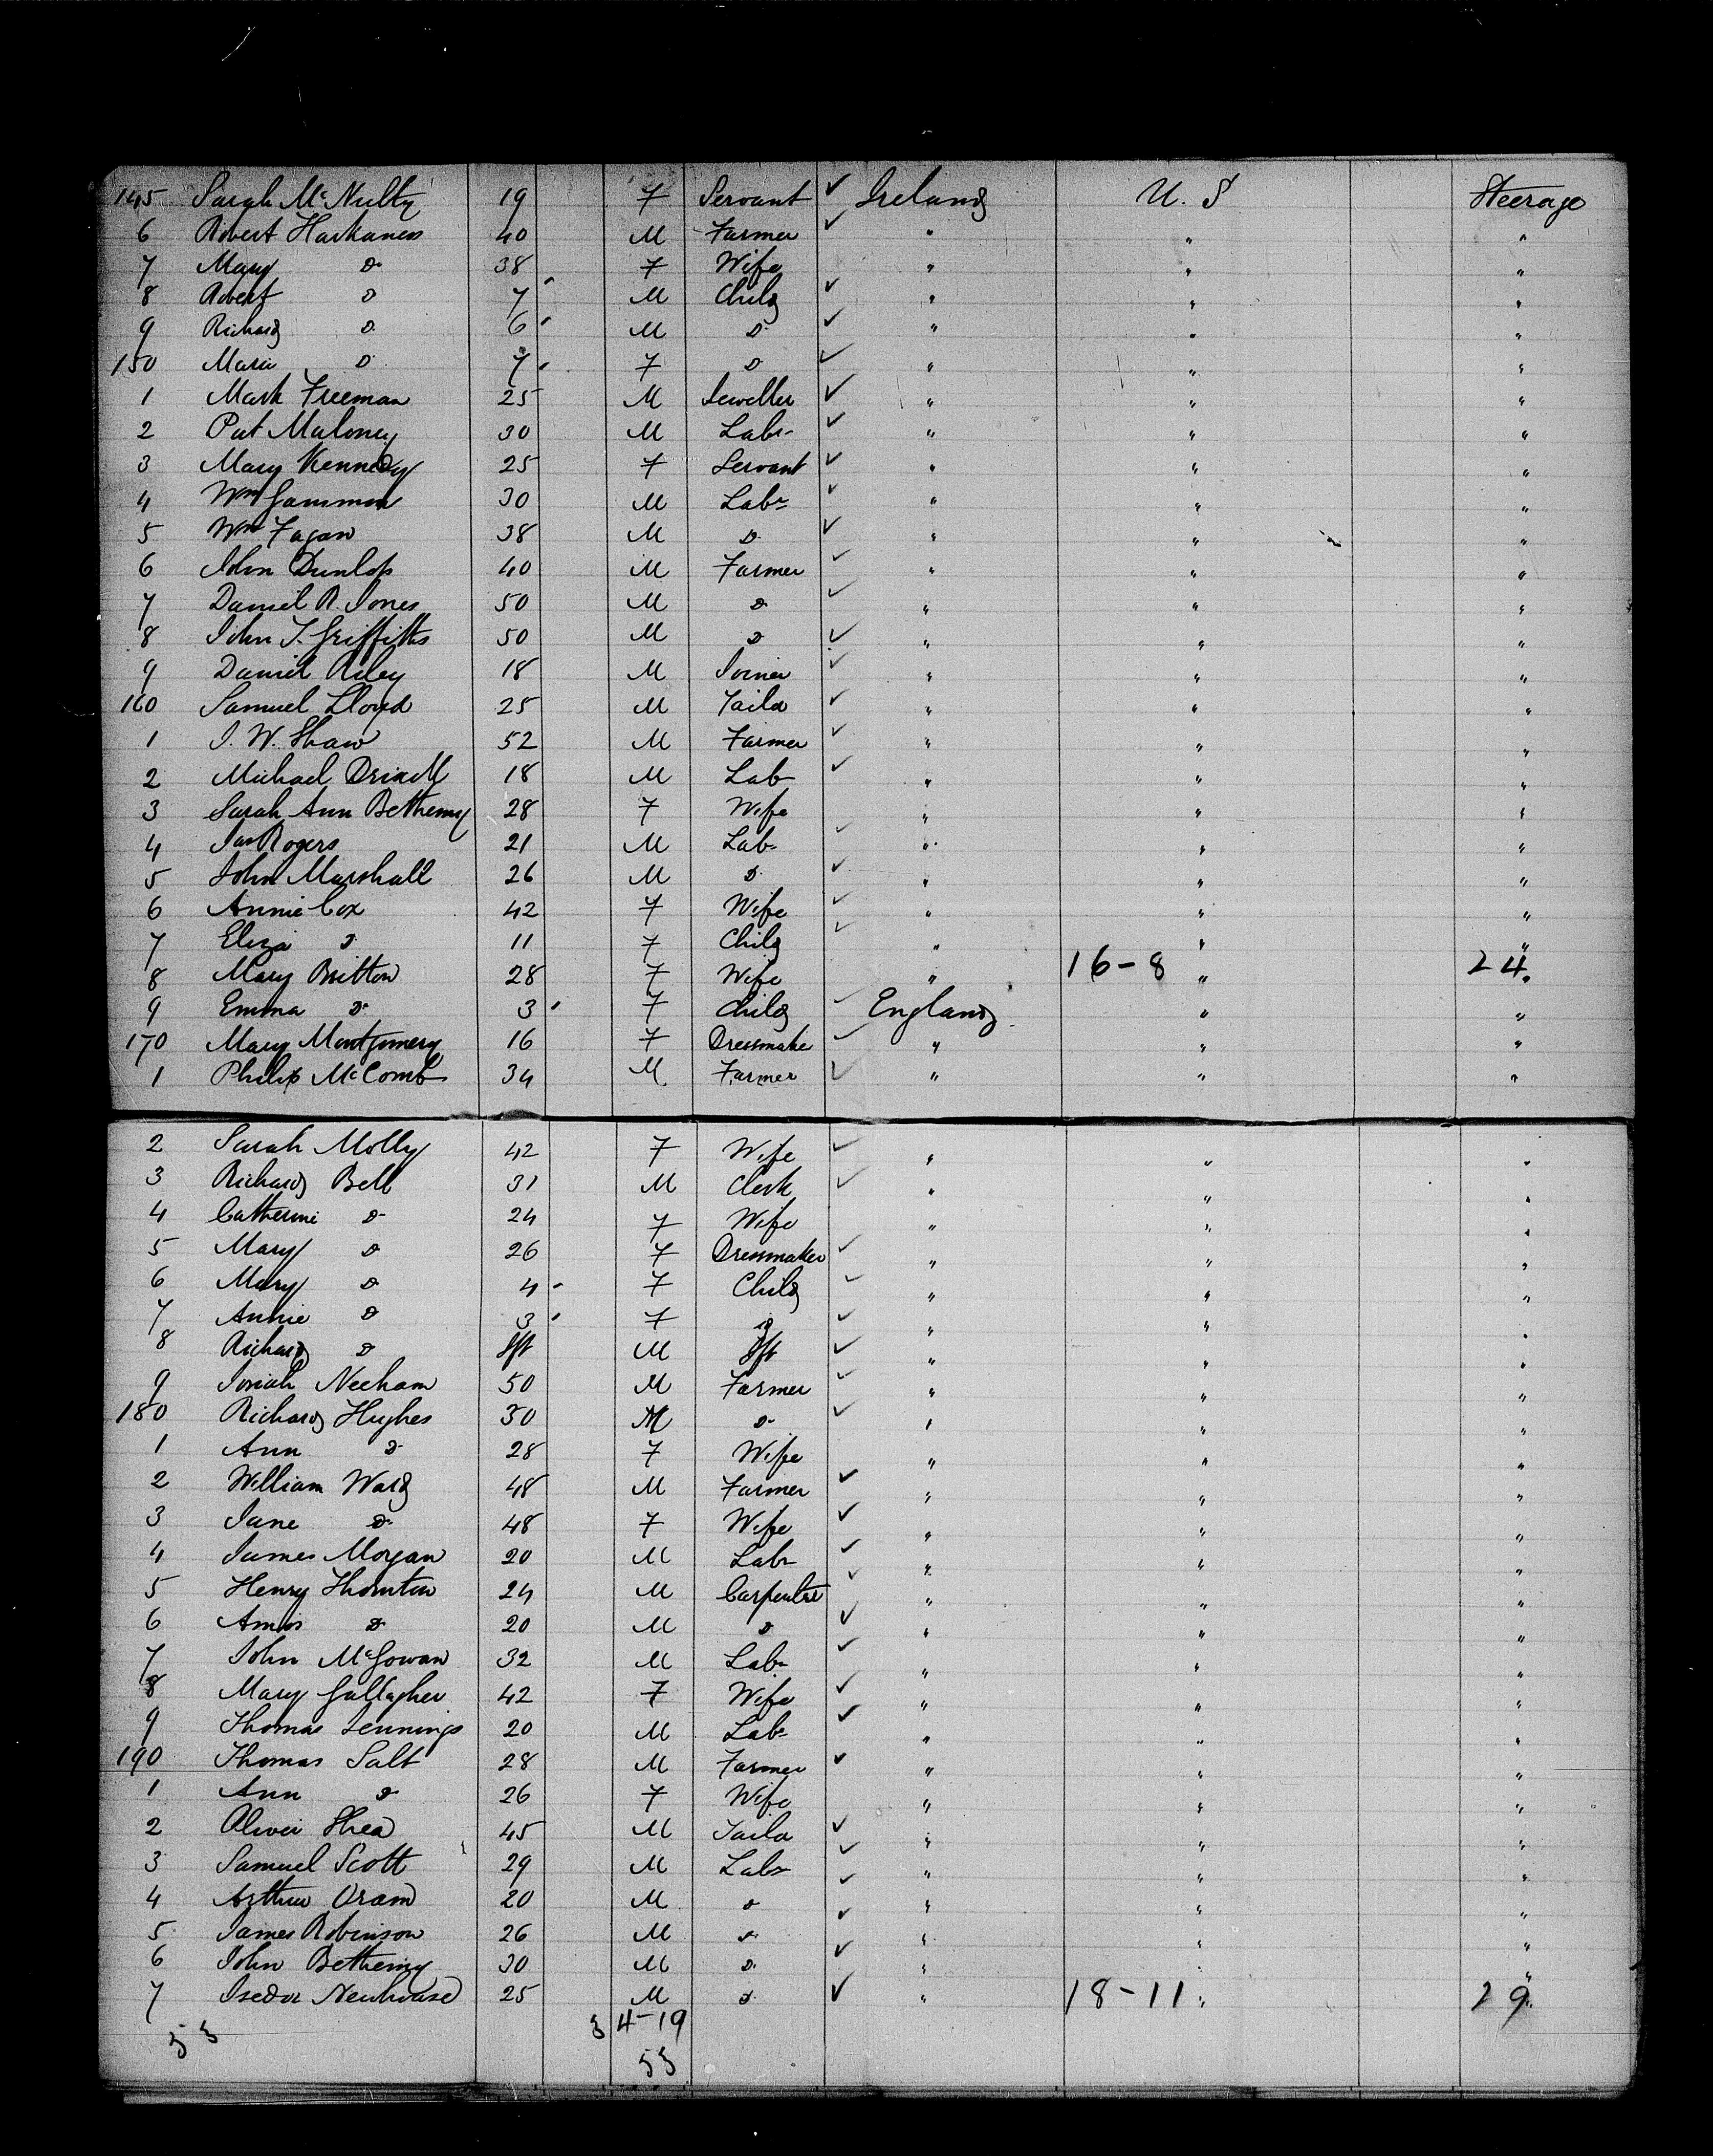 145 Sarah McNulty 19 F Servant ✓ Ireland U.S Steerage
6 Robert Harkness 40 M Farmer ✓ " " "
7 Mary Do 38 F Wife " " "
8 Robert Do 7 M Child ✓ " " "
9 Richard Do 6 M Do ✓ " " "
150 Maria Do 7 F Do ✓ " " "
1 Mark Freeman 25 M Jeweller ✓ " " "
2 Pat Maloney 30 M Labr ✓ " " "
3 Mary Kennedy 25 F Servant ✓ " " "
4 Wm Gammon 30 M Labr ✓ " " "
5 Wm Fagan 38 M Do ✓ " " "
6 John Dunlop 40 M Farmer ✓ " " "
7 Daniel R. Jones 50 M Do ✓ " " "
8 John T. Griffiths 50 M Do ✓ " " "
9 Daniel Riley 18 M Joiner ✓ " " "
160 Samuel Lloyd 25 M Tailor ✓ " " "
1 J. W. Shaw 52 M Farmer ✓ " " "
2 Michael 18 M Lab ✓ " " "
3 Sarah Ann Betheny 28 F Wife " " "
4 Jas Rogers 21 M Lab ✓ " " "
5 John Marshall 26 M Do ✓ " " "
6 Annie Cox 42 F Wife ✓ " " "
7 Eliza Do 11 F Child ✓ " " "
8 Mary Britton 28 F Wife " 16-8 " 24 "
9 Emma Do 3 F Child ✓ England " "
170 Mary Montgomery 16 F Dressmaker ✓ " " "
1 Philip McComb 34 M Farmer ✓ " " "
2 Sarah Molly 42 F Wife ✓ " " "
3 Richard Bell 31 M Clerk ✓ " " "
4 Catherine Do 24 F Wife " " "
5 Mary Do 26 F Dressmaker ✓ " " "
6 Mary Do 4 F Child ✓ " " "
7 Annie Do 3 F Do ✓ " " "
8 Richard Do Ift M Ift ✓ " " "
9 Josiah Neeham 50 M Farmer ✓ " " "
180 Richard Hughes 30 M Do ✓ " " "
1 Ann Do 28 F Wife " " "
2 William Ward 48 M Farmer ✓ " " "
3 Jane Do 48 F Wife ✓ " " "
4 James Morgan 20 M Labr ✓ " " "
5 Henry Thornton 24 M Carpenter ✓ " " "
6 Amos Do 20 M Do ✓ " " "
7 John McGowan 32 M Labr ✓ " " "
8 Mary Gallagher 42 F Wife ✓ " " "
9 Thomas Jennings 20 M Labr ✓ " " "
190 Thomas Salt 28 M Farmer ✓ " " "
1 Ann Do 26 F Wife " " "
2 Oliver Shea 45 M Tailor ✓ " " "
3 Samuel Scott 29 M Labr ✓ " " "
4 Arthur Oram 20 M Do ✓ " " "
5 James Robinson 26 M Do ✓ " " "
6 John Betheny 30 M Do ✓ " " "
7 Isedor Newhouse 25 M Do ✓ " 18-11 " 29 "
53 34-19
53